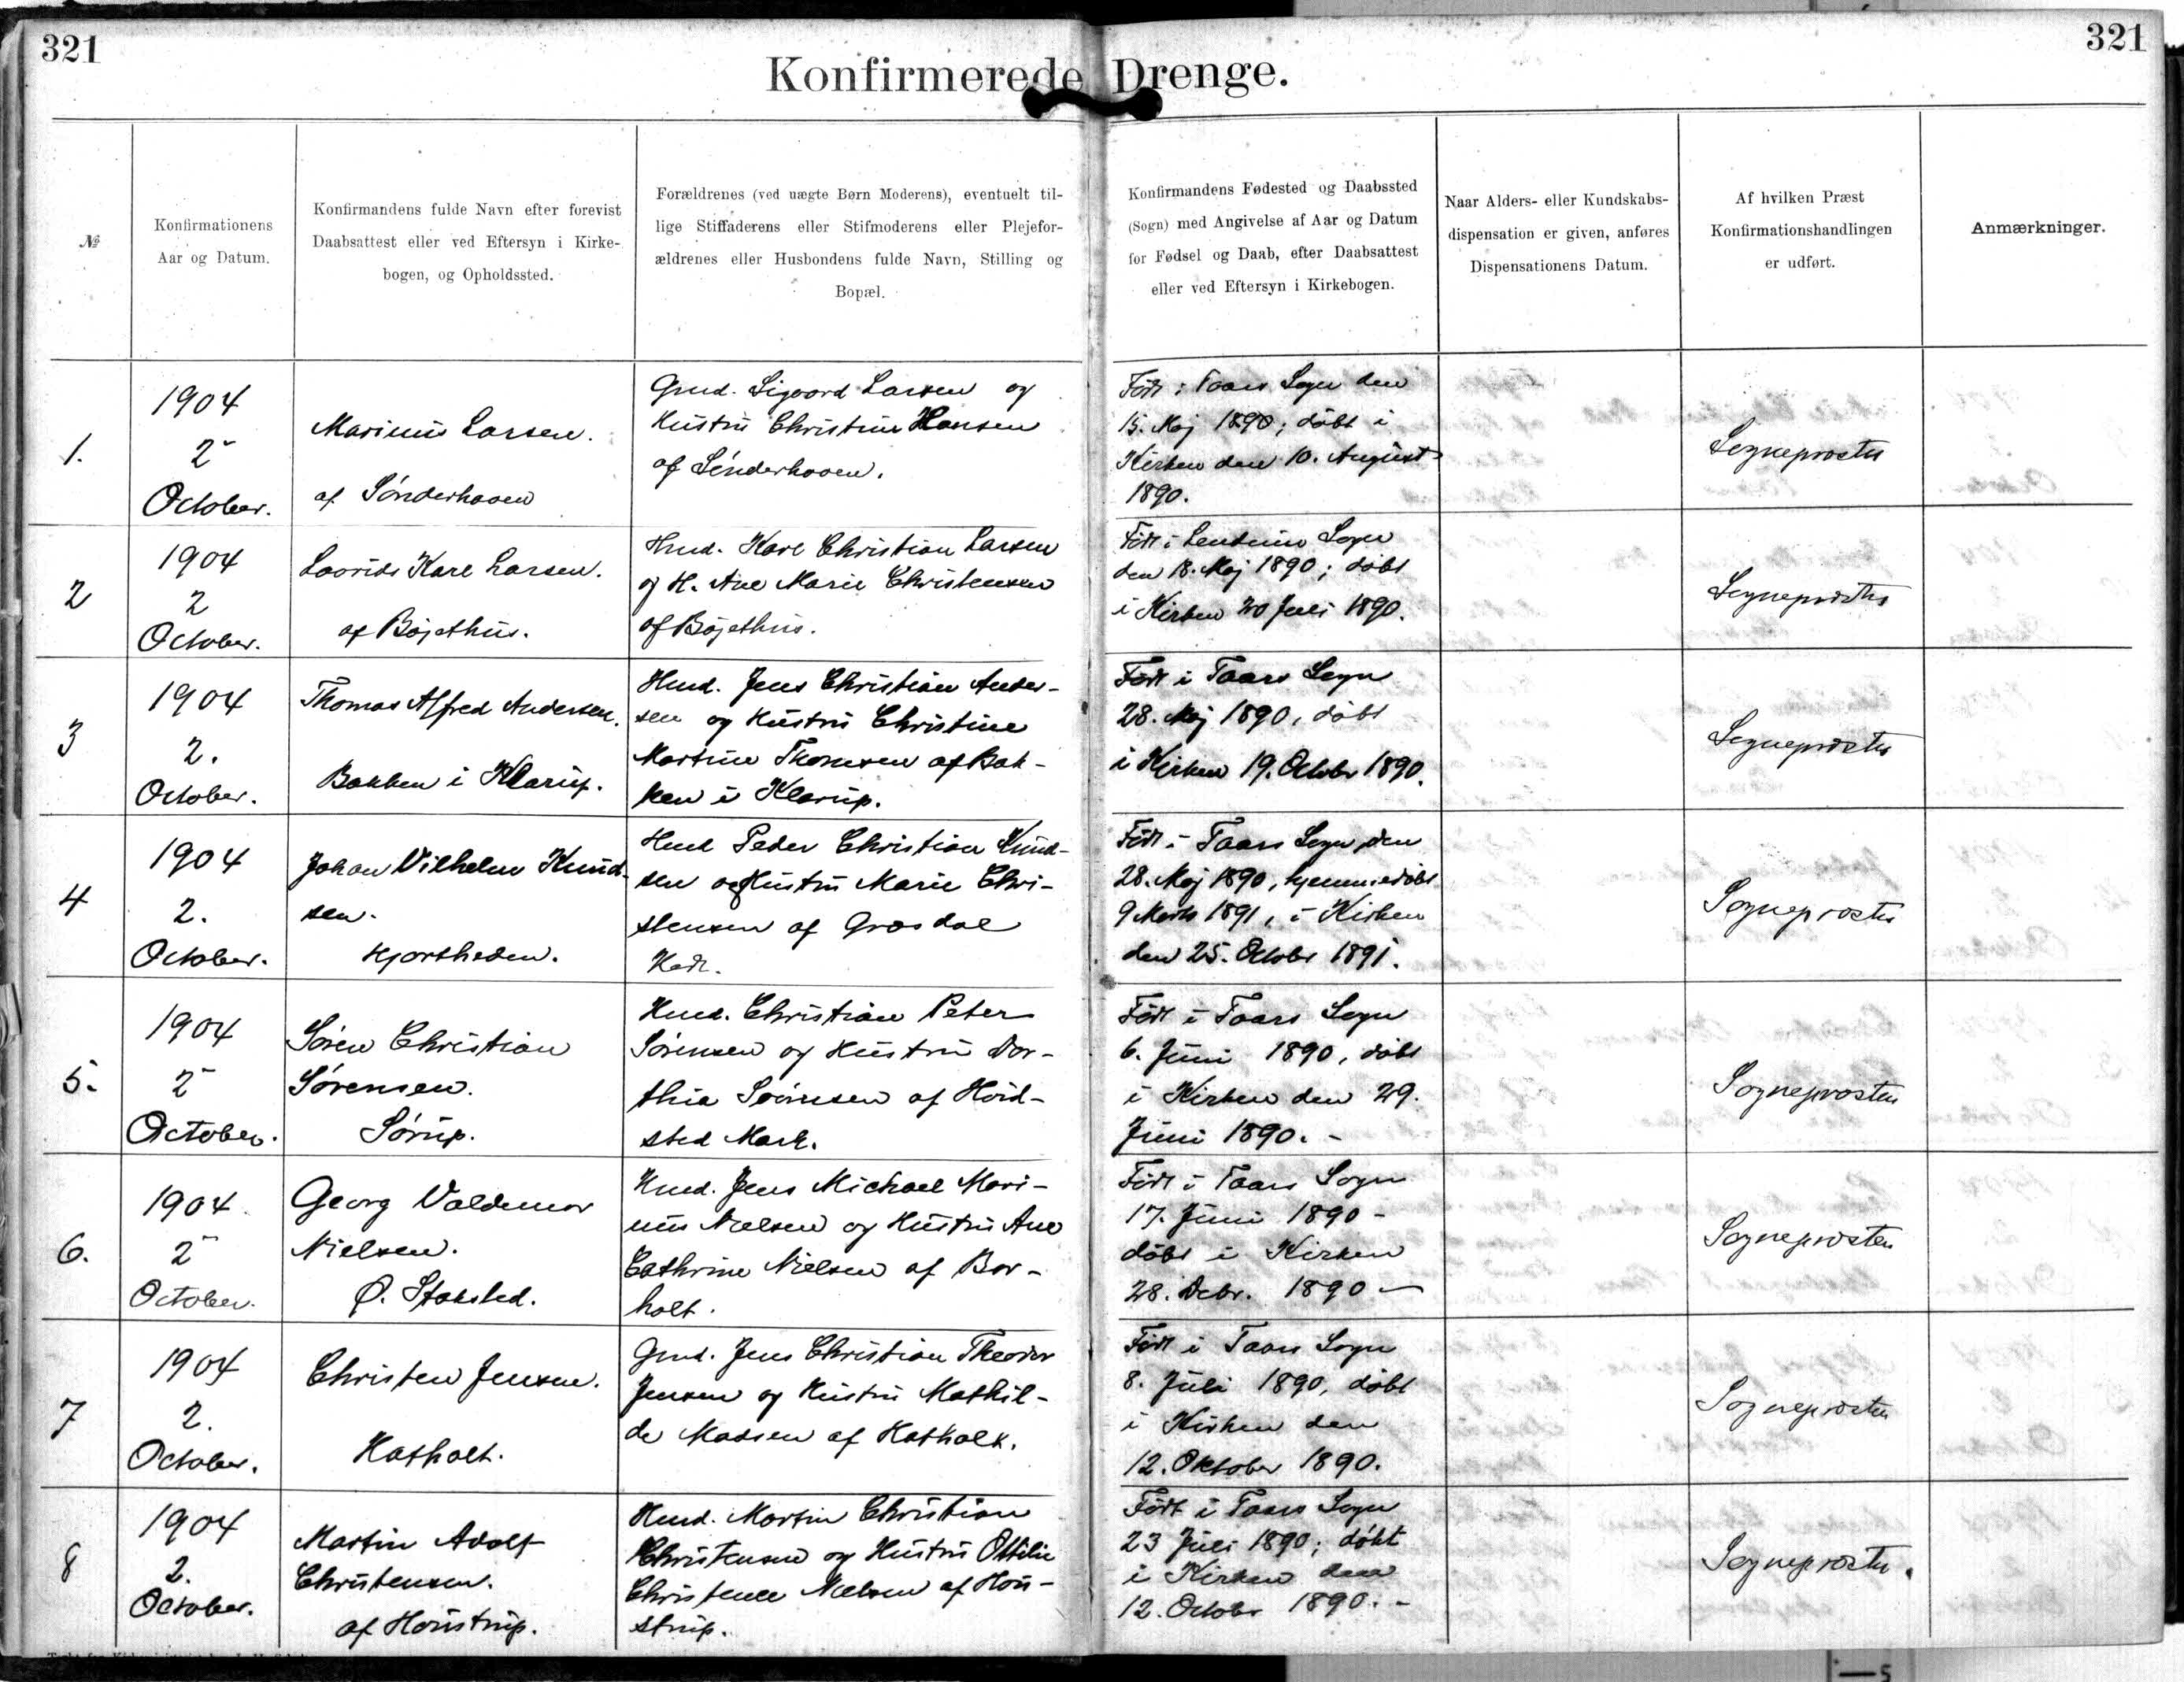 321
321
Konfirmerede Drenge.
№
Konfirmationens
Aar og Datum.
Konfirmandens fulde Navn efter forevist
Daabsattest eller ved Eftersyn i Kirke-
bogen, og Opholdssted.
Forældrenes (ved uægte Børn Moderens), eventuelt til-
lige Stiffaderens eller Stifmoderens eller Plejefor-
ældrenes eller Husbondens fulde Navn, Stilling og
Bopæl.
Konfirmandens Fødested og Daabssted
(Sogn) med Angivelse af Aar og Datum
for Fødsel og Daab, efter Daabsattest
eller ved Eftersyn i Kirkebogen.
Naar Alders- eller Kundskabs-
dispensation er given, anføres
Dispensationens Datum.
Af hvilken Præst
Konfirmationshandlingen
er udført.
Anmærkninger.
1.
1904
2
October.
Marinus Larsen.
af Sønderhaven
Gmd. Sigvard Larsen og
Hustru Christine Hansen
af Sønderhaven.
Født i Taars Sogn den
15. Maj 1890; døbt i
Kirken den 10. August
1890.
Sogneprosten
2
1904
2
October.
Laurids Karl Larsen.
af Böjethus.
Hmd. Karl Christian Larsen
og H. Ane Marie Christensen
af Böjethus.
Født i Lendum Sogn
den 18. Maj 1890; døbt
i Kirken 20 Juli 1890.
Sogneprosten
3
1904
2.
October.
Thomas Alfred Andersen.
Bakken i Klarup.
Hmd. Jens Christian Ander-
sen og Hustru Christine
Martine Thomsen af Bak-
ken i Klarup.
Født i Taars Sogn
28. Maj 1890, døbt
i Kirken 19. Octobr 1890.
Sogneprosten
4
1904
2.
October.
Johan Vilhelm Knud-
sen.
Kjortheden.
Hmd Peder Christian Knud-
sen og Hustru Marie Chri-
stensen af Grøsdal
Hede.
Født i Taars Sogn den
28. Maj 1890, hjemmedøbt
9 Marts 1891, i Kirken
den 25. Octobr 1891.
Sogneprosten
5.
1904
2
October.
Søren Christian
Sørensen.
Sørup.
Hmd. Christian Peter
Sørensen og Hustru Dor-
thia Sørensen af Hvid-
sted Mark.
Født i Taars Sogn
6. Juni 1890, døbt
i Kirken den 29.
Juni 1890. -
Sogneprosten
6.
1904.
2
October.
Georg Valdemar
Nielsen.
Ø. Stoksted.
Hmd. Jens Michael Mari-
nus Nielsen og Hustru Ane
Cathrine Nielsen af Bor-
holt.
Født i Taars Sogn
17. Juni 1890 -
døbt i Kirken
28. Debr. 1890 -
Sogneprosten
7
1904
2.
October.
Christen Jensen.
Katholt.
Gmd. Jens Christian Theodor
Jensen og Hustru Mathil-
de Madsen af Katholt.
Født i Taars Sogn
8. Juli 1890, døbt
i Kirken den
12. Oktober 1890.
Sogneprosten
8
1904
2.
October.
Martin Adolf
Christensen.
af Houstrup.
Hmd. Martin Christian
Christensen og Hustru Ottilie
Christence Nielsen af Hou-
strup.
Født i Taars Sogn
23 Juli 1890; døbt
i Kirken den
12. Octobr 1890. -
Sogneprosten.